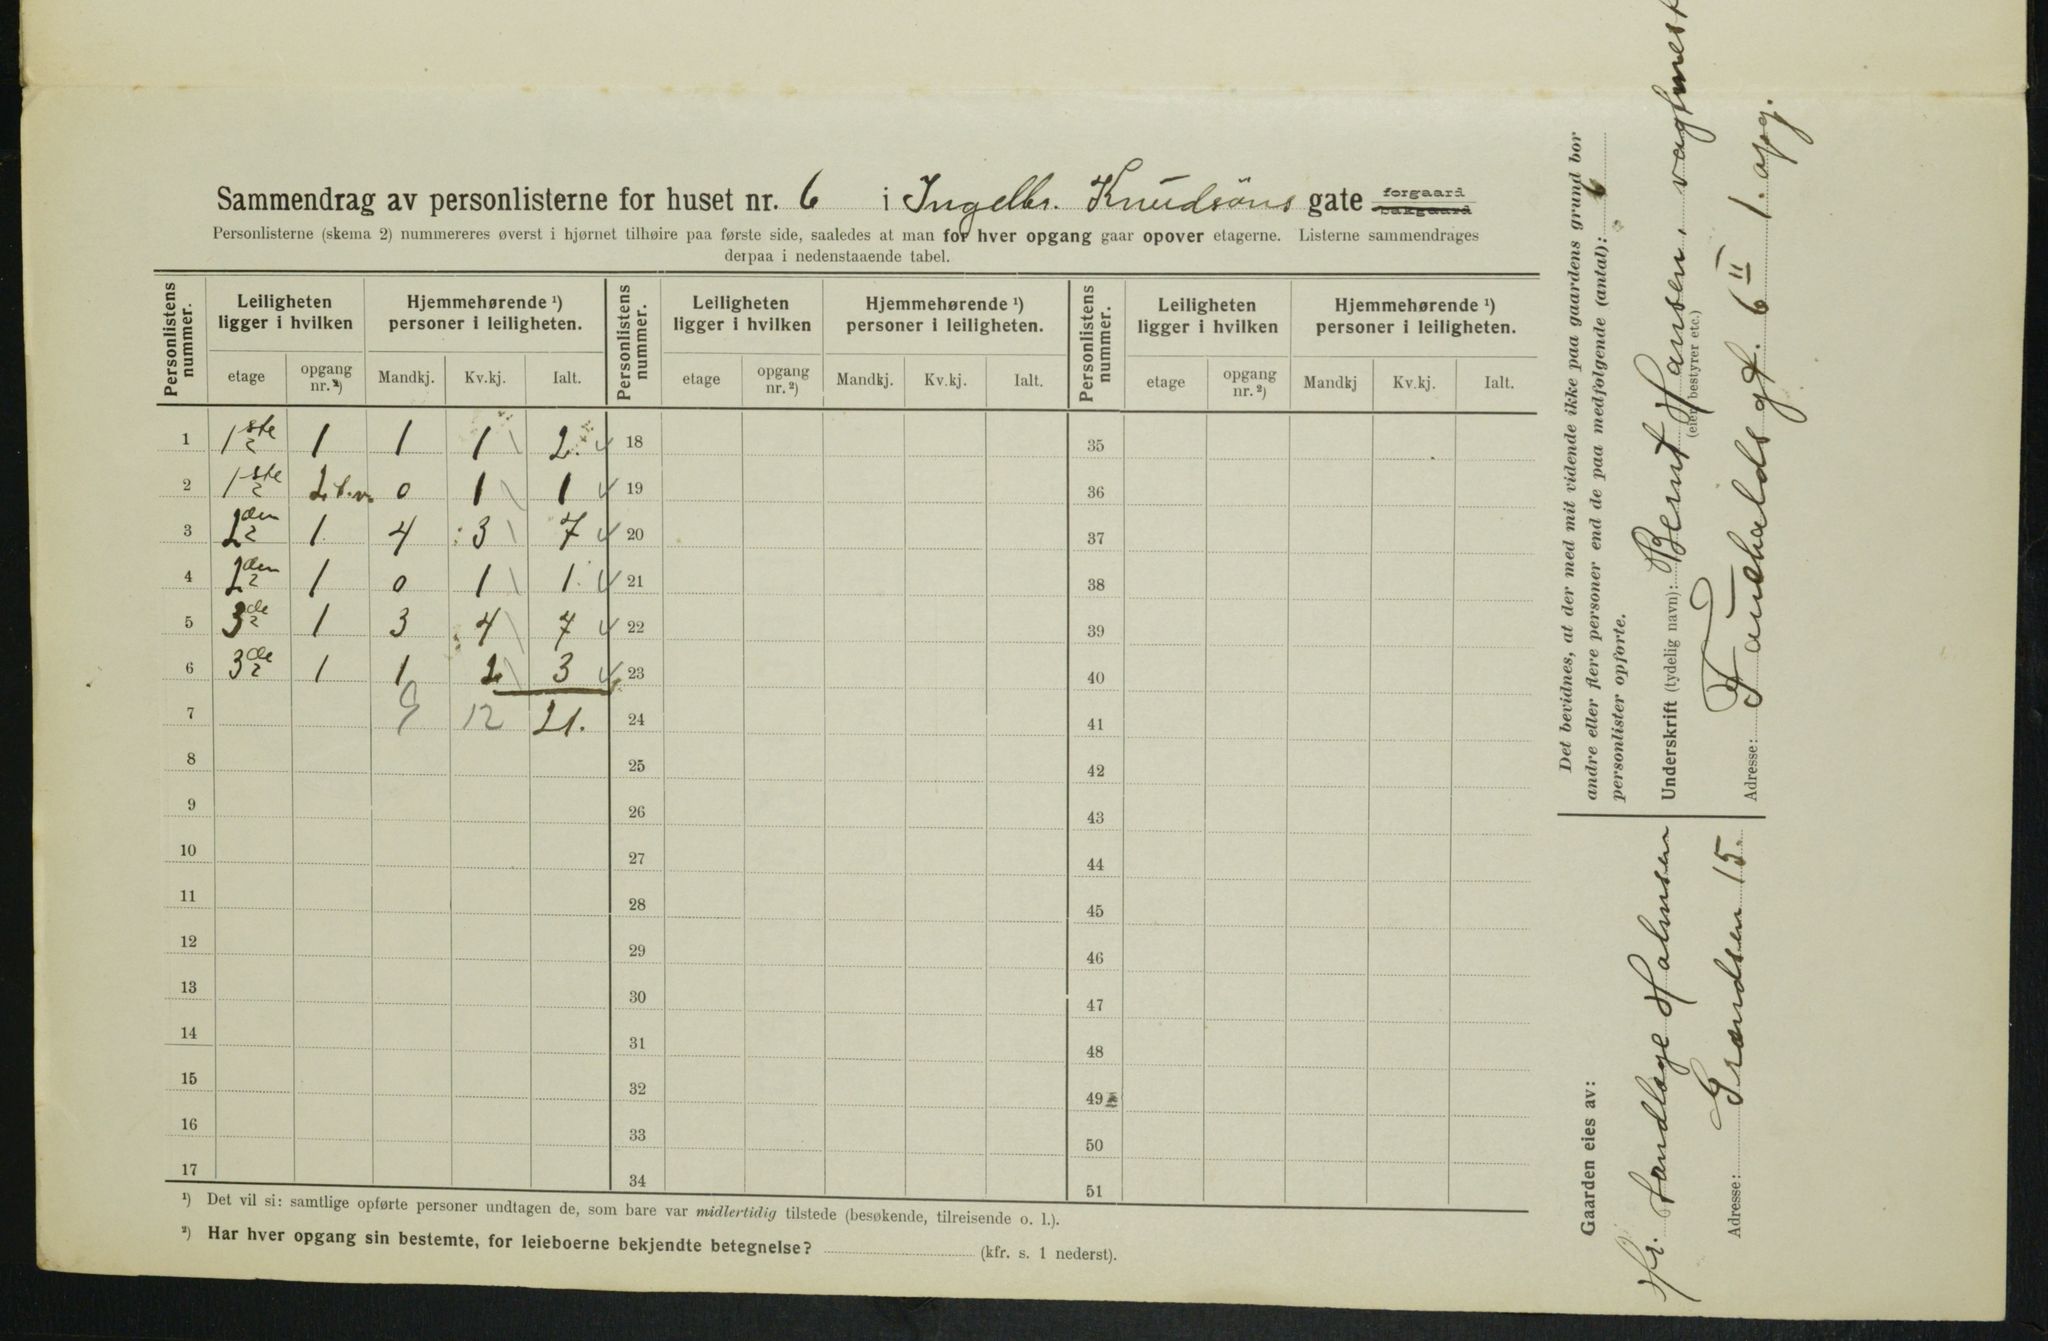 Sammendrag av personlisterne for huset nr. 6 i Ingelbr. Knudsöns gate forgaard
bakgaard
Personlisterne (skema 2) nummereres øverst i hjørnet tilhøire paa første side, saaledes at man for hver opgang gaar opover etagerne. Listerne sammendrages
derpaa i nedenstaaende tabel.
Personlistens nummer. Leiligheten ligger i hvilken Hjemmehørende ¹) personer i leiligheten. Personlistens nummer. Leiligheten ligger i hvilken Hjemmehørende ¹) personer i leiligheten. Personlistens nummer. Leiligheten ligger i hvilken Hjemmehørende ¹) personer i leiligheten.
etage opgang nr. ²) Mandkj. Kv.kj. Ialt. etage opgang nr. ²) Mandkj. Kv.kj. Ialt. etage opgang nr. ²) Mandkj Kv.kj. Ialt.
1 1ste 1 1 1 2. 18 35
2 1ste 2 t.v. 0 1 1 19 36
3 2den 1. 4 3 7 20 37
4 2den 1 0 1 1. 21 38
5 3de 1 3 4 7 22 39
6 3de 1 1 2 3 23 40
7 9 12 21. 24 41
8 25 42
9 26 43
10 27 44
11 28 45
12 29 46
13 30 47
14 31 48
15 32 49
16 33 50
17 34 51
¹) Det vil si: samtlige opførte personer undtagen de, som bare var midlertidig tilstede (besøkende, tilreisende o. l.).
²) Har hver opgang sin bestemte, for leieboerne bekjendte betegnelse? (kfr. s. 1 nederst).
Det bevidnes, at der med mit vidende ikke paa gaardens grund bor
andre eller flere personer end de paa medfølgende (antal): 6
personlister opførte.
Underskrift (tydelig navn): Bernt Hansen, vagtmest
(eier, bestyrer etc.)
Adresse: Fauchalds gt. 6 II 1. opg.
Gaarden eies av:
Hr. Halmsen
Adresse: Grændsen 15.